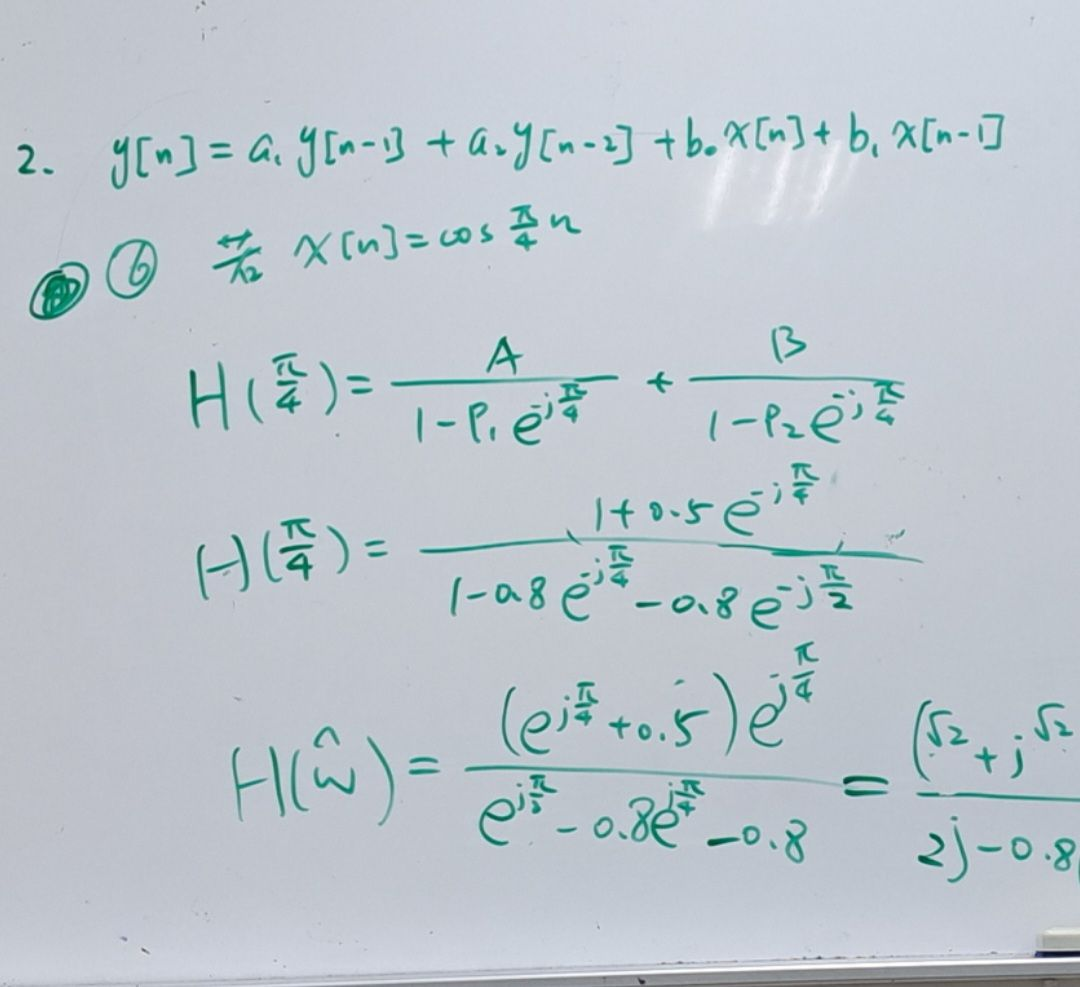 2. y[n] = a₁ y[n-1] + a₂ y[n-2] + b₀ x[n] + b₁ x[n-1]
⑥ x[n] = cos π/4 n
H(π/4) = A/(1-P₁e^(-jπ/4)) + B/(1-P₂e^(-jπ/4))
H(π/4) = (1+0.5e^(-jπ/4))/(1-0.8e^(-jπ/4) - 0.8e^(-jπ/2))
H(ω̂) = ((e^(jπ/4) + 0.5)e^(jπ/4))/(e^(jπ/2) - 0.8e^(jπ/4) - 0.8) = (√2 + j√2)/(2j - 0.8